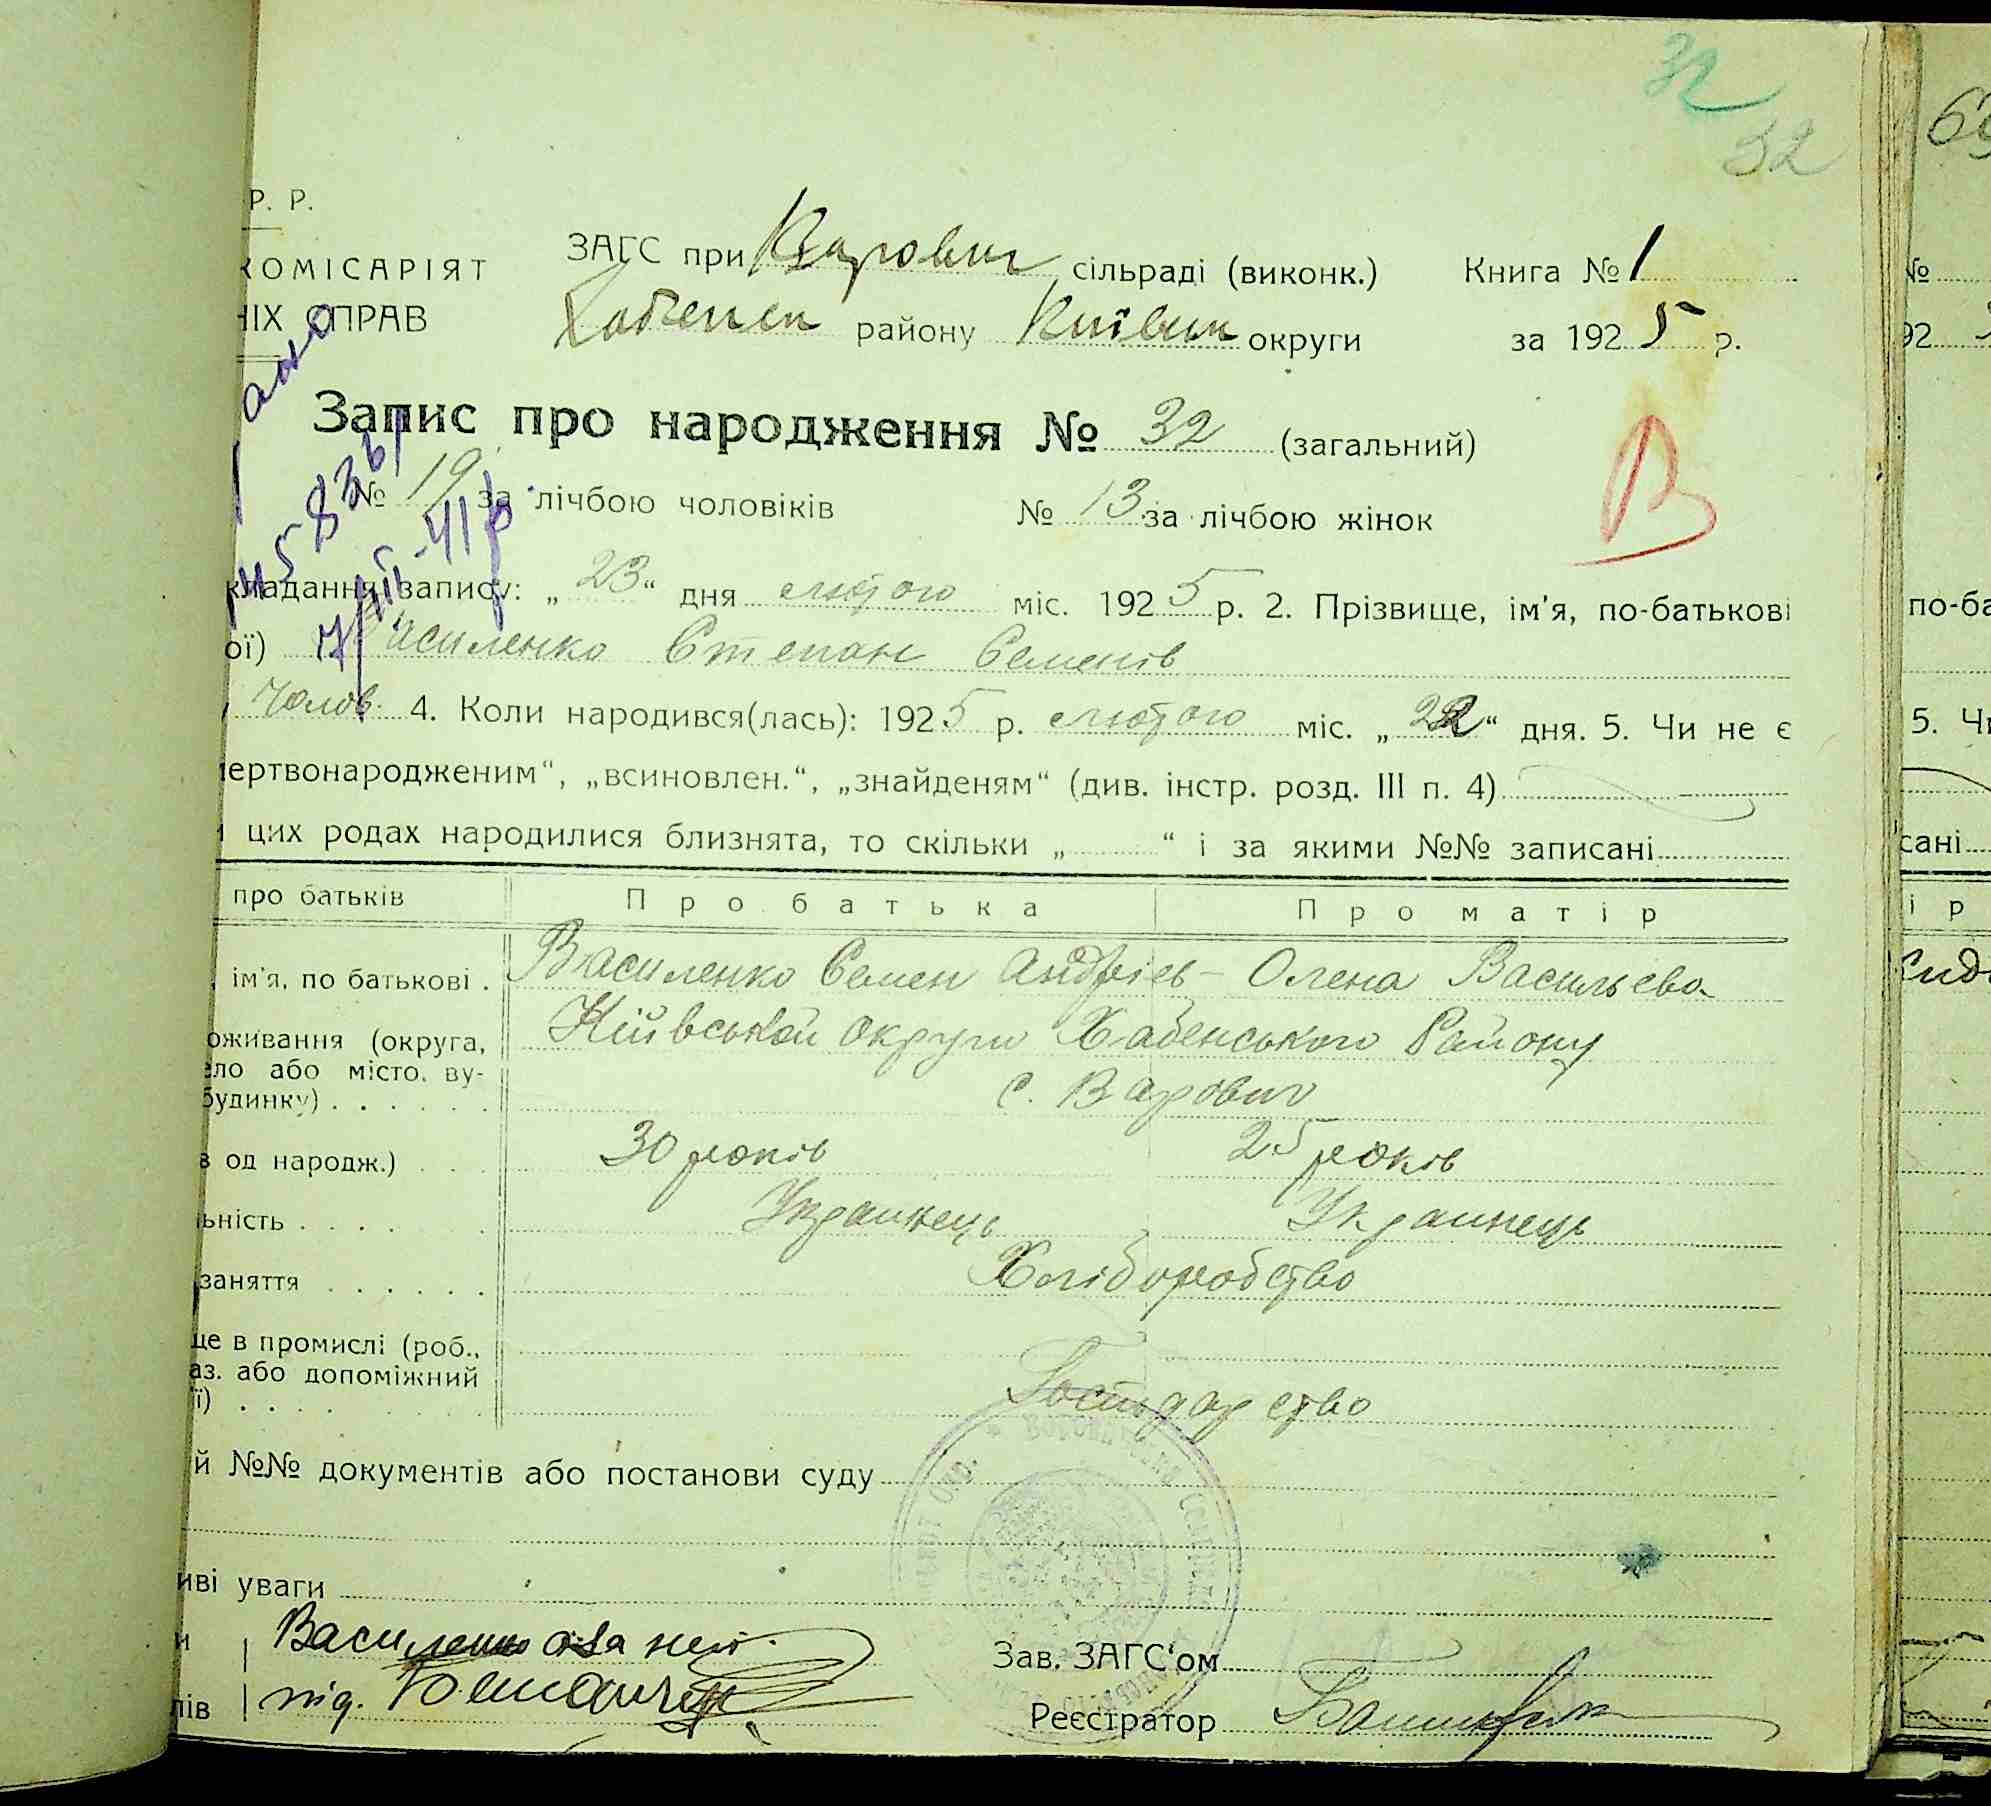 32
32
Р. Р.
КОМІСАРІЯТ
ЗАГС при Варович сільраді (виконк.) Книга № 1
ІХ СПРАВ
Хабенск району Київськ округи за 1925 р.
Запис про народження № 32 (загальний)
№ 19 за лічбою чоловіків № 13 за лічбою жінок
кладання запису: „23“ дня лютого міс. 1925 р. 2. Прізвище, ім'я, по-батькові
ої) Василенко Степан Семенів
Чолов. 4. Коли народився(лась): 1925 р. лютого міс. „22“ дня. 5. Чи не є
ертвонародженим“, „всиновлен.“, „знайденям“ (див. інстр. розд. III п. 4)
и цих родах народилися близнята, то скільки „ “ і за якими №№ записані
про батьків Про батька Про матір
ім'я, по батькові . Василенко Семен Андріев - Олена Васильева
оживання (округа, Київськой округи Хабенського Району
ело або місто, ву-
будинку) . . . . . . с. Варович
в од народж.) . . . 30 років 25 років
ьність . . . . Украинець Украинець
заняття . . . . . . Хліборобство
ще в промислі (роб.,
аз. або допоміжний
ії) . . . . Господарство
й №№ документів або постанови суду
иві уваги
и Василенко а за неп.
Зав. ЗАГС'ом
лів під.
Реєстратор
В
69
№
92
по-ба
5. Чи
сані
і р